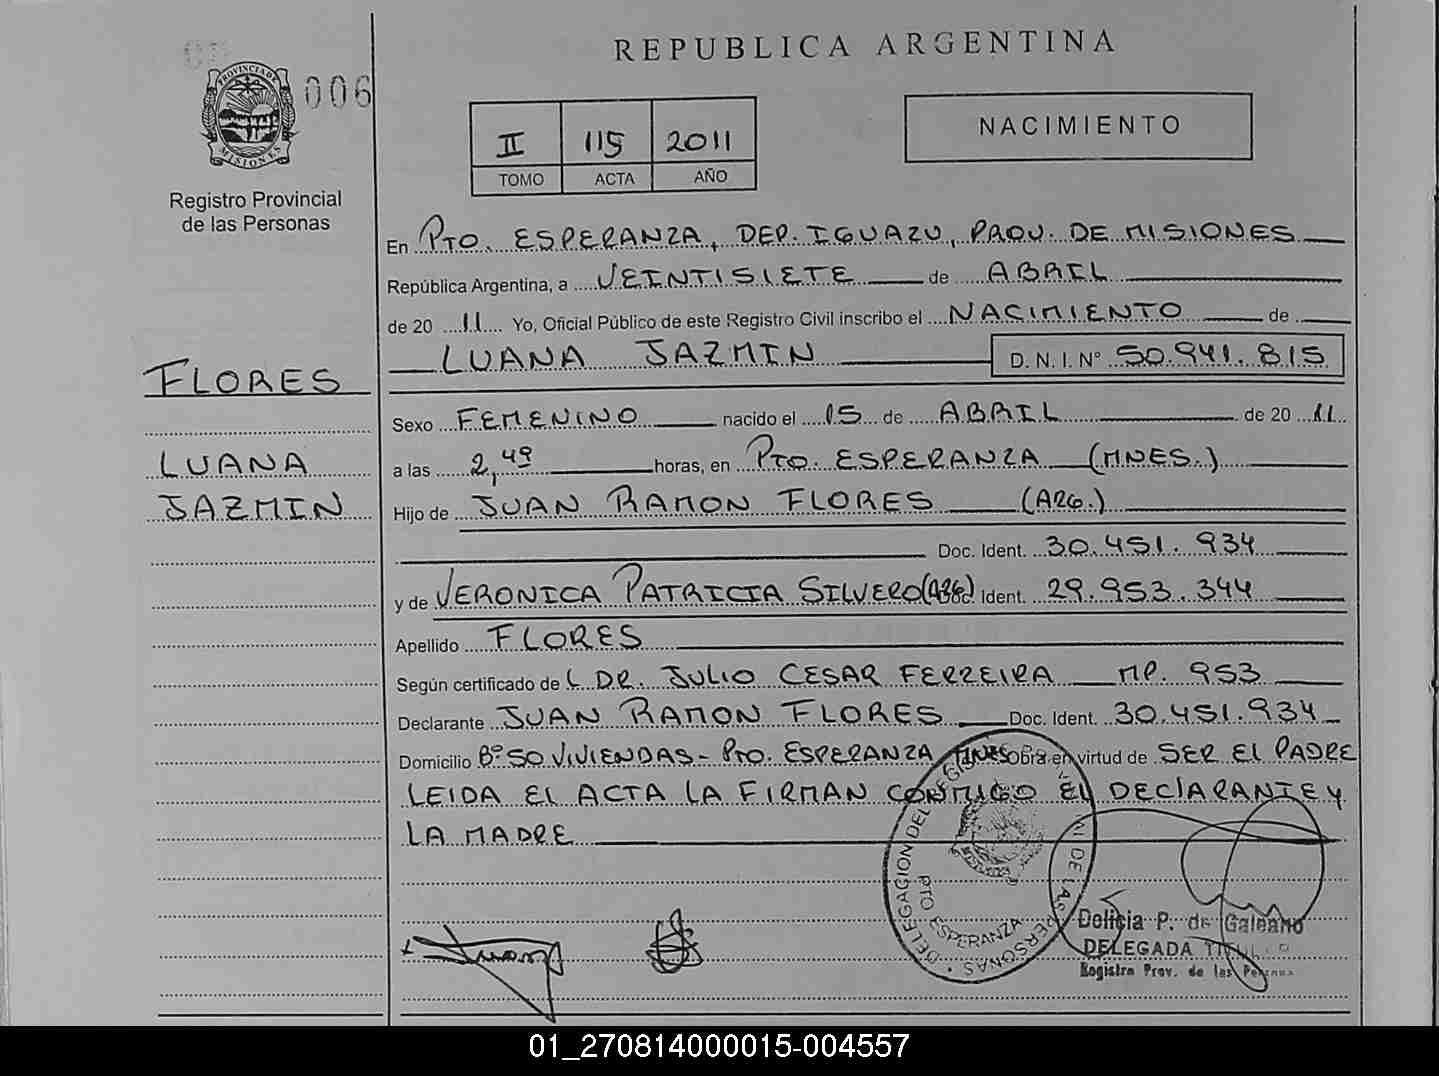 REPUBLICA ARGENTINA
006
PROVINCIA DE MISIONES
Registro Provincial
de las Personas
II 115 2011
TOMO ACTA AÑO
NACIMIENTO
En PTO. ESPERANZA, DEP. IGUAZU, PROV. DE MISIONES
República Argentina, a VEINTISIETE de ABRIL
de 20 11 Yo, Oficial Público de este Registro Civil inscribo el NACIMIENTO de
LUANA JAZMIN D. N. I. N° 50.941.815
FLORES
LUANA
JAZMIN
Sexo FEMENINO nacido el 15 de ABRIL de 20 11
a las 2,49 horas, en PTO. ESPERANZA (MNES.)
Hijo de JUAN RAMON FLORES (ARG.)
Doc. Ident. 30.451.934
y de VERONICA PATRICIA SILVERO (ARG) Doc. Ident. 29.953.344
Apellido FLORES
Según certificado de L DR. JULIO CESAR FERREIRA MP. 953
Declarante JUAN RAMON FLORES Doc. Ident. 30.451.934
Domicilio B° 50 VIVIENDAS - PTO. ESPERANZA MNES Obra en virtud de SER EL PADRE
LEIDA EL ACTA LA FIRMAN CONMIGO EL DECLARANTE Y
LA MADRE
DELEGACION DEL REGISTRO DE LAS PERSONAS
PTO ESPERANZA
Delicia P. de Galeano
DELEGADA TITULAR
Registro Prov. de las Personas
01_270814000015-004557